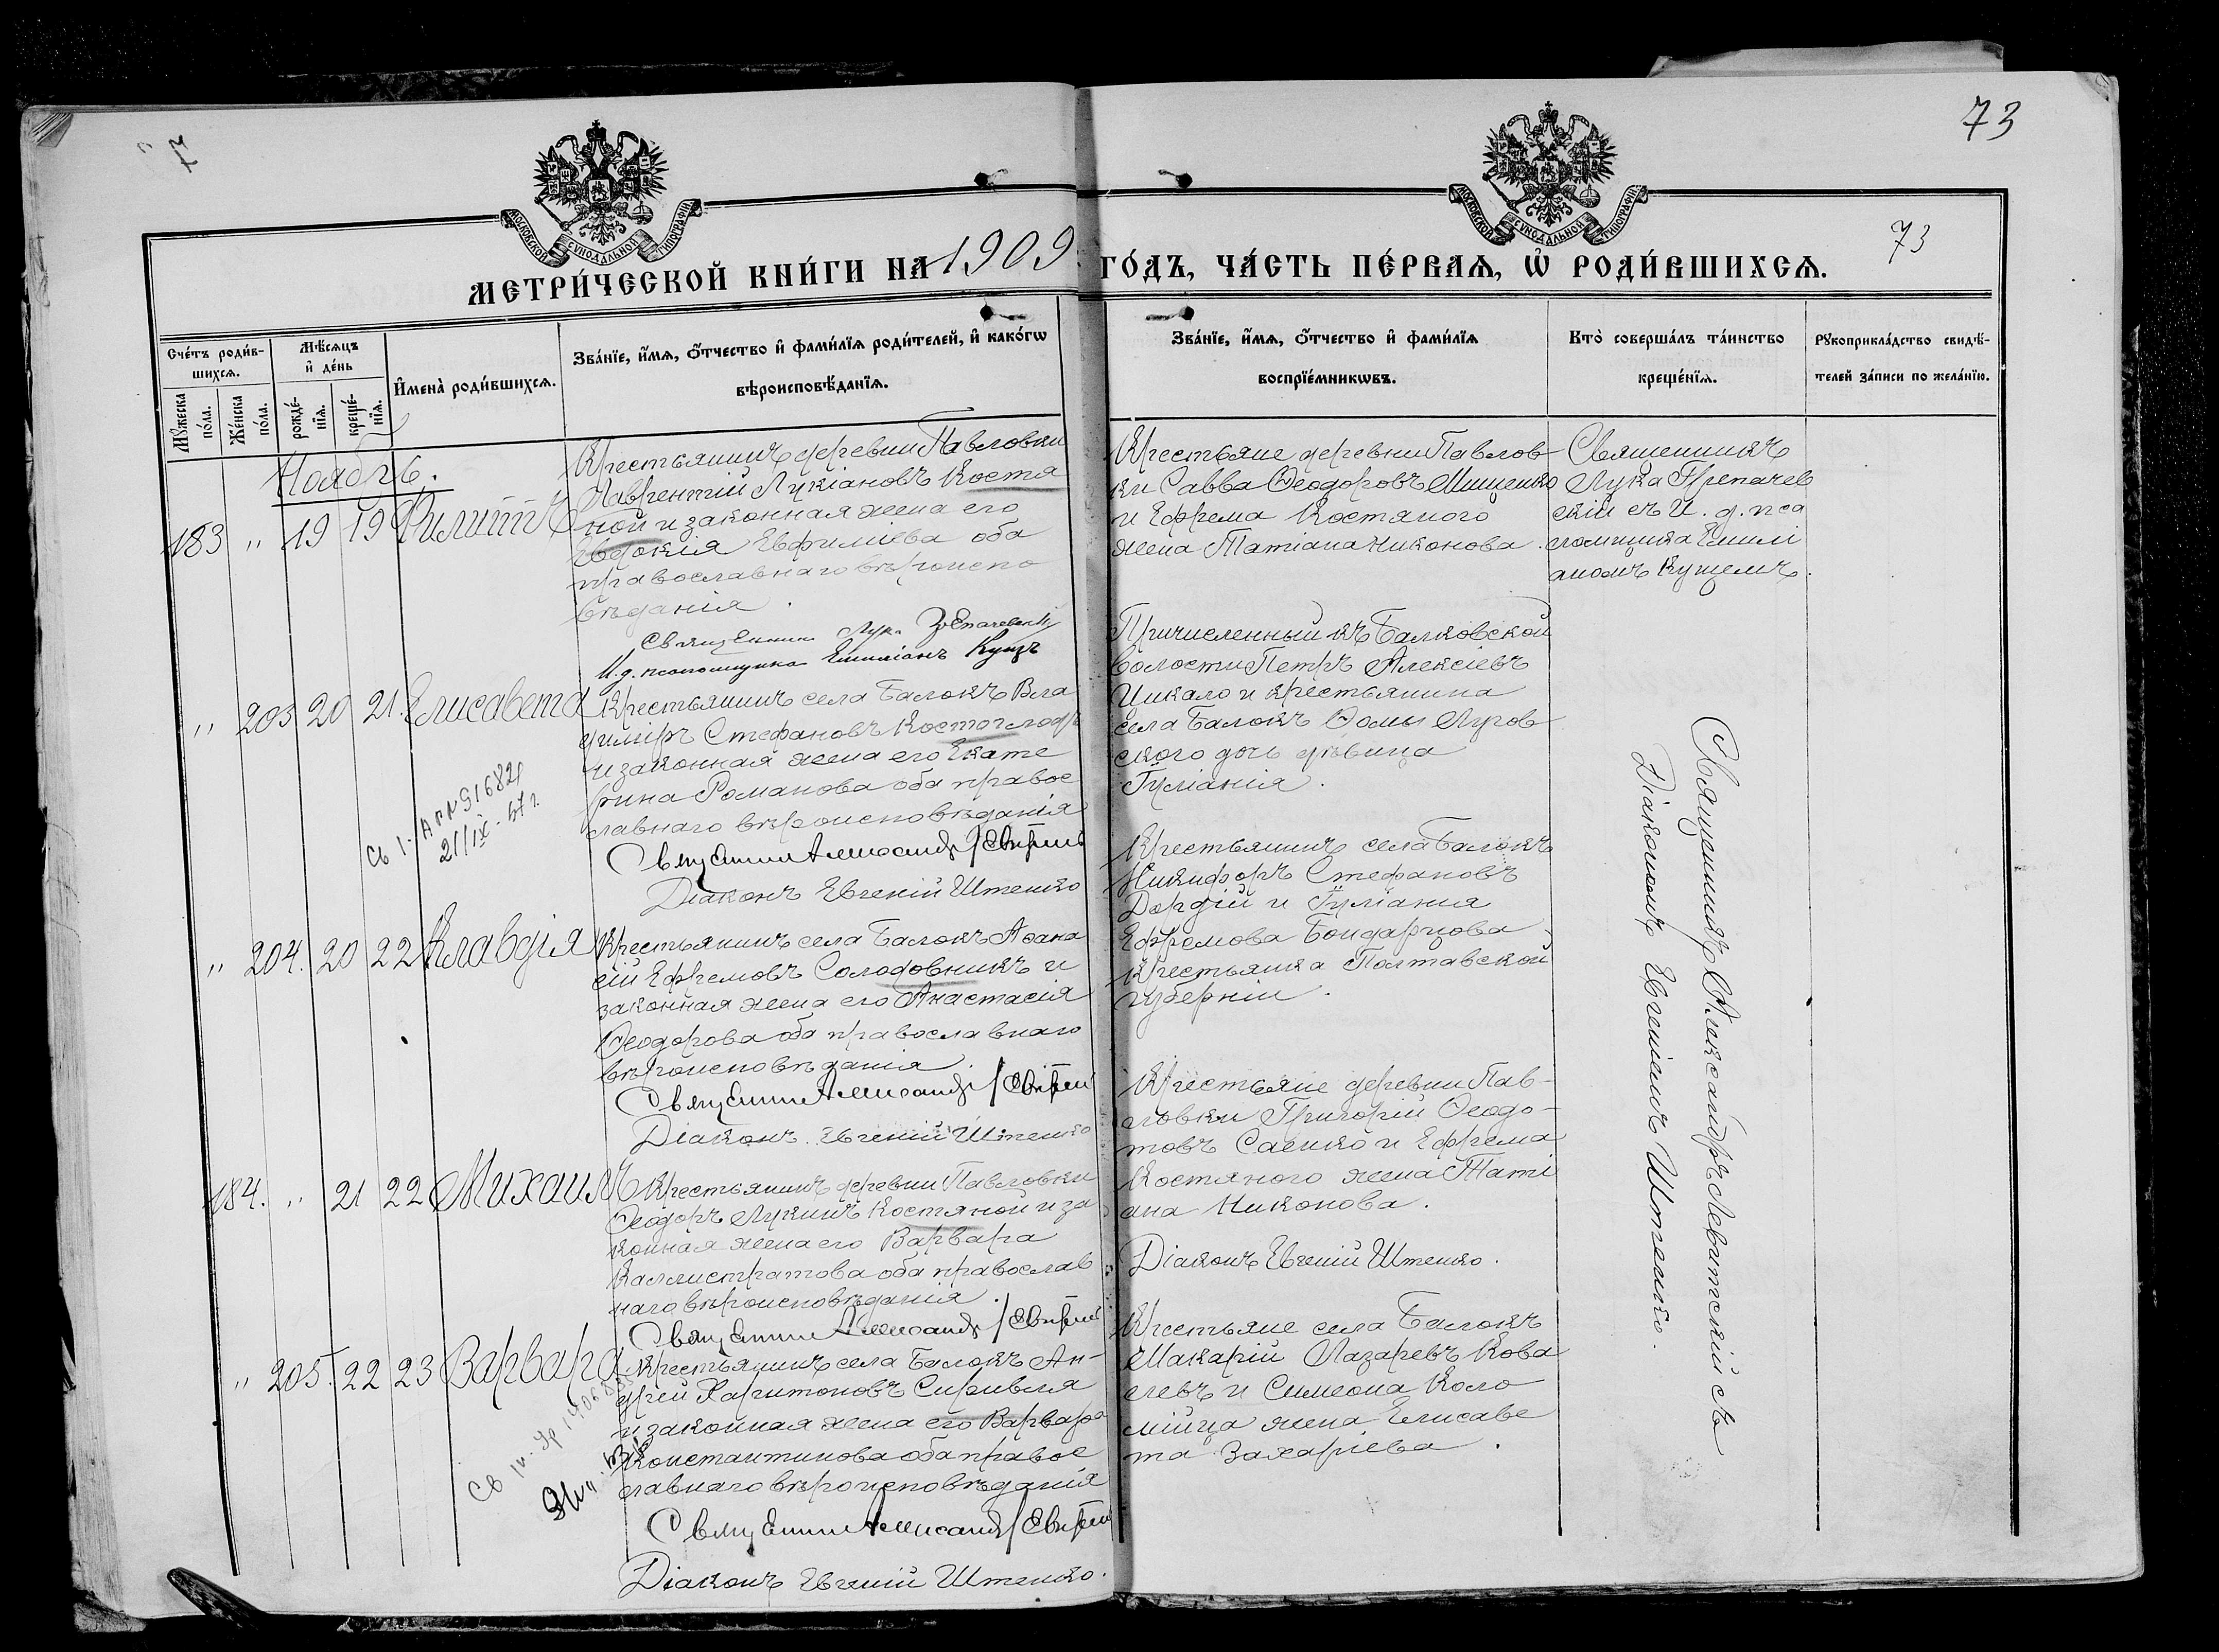 73
73
МОСКОВСКОЙ СѴНОДАЛЬНОЙ ТИПОГРАФІИ
МОСКОВСКОЙ СѴНОДАЛЬНОЙ ТИПОГРАФІИ
МЕТРИ́ЧЕСКОЙ КНИ́ГИ НА 1909 ГО́ДЪ, ЧА́СТЬ ПЕ́РВАѦ, Ѡ҆ РОДИ́ВШИХСѦ.
Сче́тъ роди́в-
шихсѧ.
Мꙋ́жеска по́ла.
Же́нска по́ла.
Мѣ́сѧцъ
и҆ де́нь
рожде́-
нїѧ.
креще́-
нїѧ.
И҆мена̀ роди́вшихсѧ.
Зва́нїе, и҆́мѧ, ѻ҆́тчество и҆ фами́лїѧ роди́телей, и҆ како́гѡ
вѣроисповѣ́данїѧ.
Зва́нїе, и҆́мѧ, ѻ҆́тчество и҆ фами́лїѧ
воспрїе́мникѡвъ.
Кто̀ соверша́лъ та́инство
креще́нїѧ.
Рꙋкоприкла́дство свидѣ́-
телей за́писи по жела́нїю.
Ноябрь.
183 " 19 19 Филиппъ
Крестьянинъ деревни Павловки
Лаврентій Лукіановъ Костя
ной и законная жена его
Евдокія Евфиміева оба
православнаго вѣроиспо
вѣданія.
Священникъ Лука
И. д. псаломщика Емиліанъ Кущъ
Крестьяне деревни Павлов
ки Савва Ѳеодоровъ Мищенко
и Ефрема Костяного
жена Татіана Никонова.
Священникъ
Лука
скій съ И. д. пса
ломщика Емилі
аномъ Кущемъ.
" 203 20 21 Елисавета
Крестьянинъ села Балокъ Вла
димиръ Стефановъ Костоглодъ
и законная жена его Екате
рина Романова оба правос
лавнаго вѣроисповѣданія
Священникъ Александръ Левитскій
Діаконъ Евгеній Штенко
Причисленный къ Балковской
волости Петръ Алексіевъ
Цикало и крестьянина
села Балокъ Ѳомы Лугов
ского дочь дѣвица
Іуліанія.
" 204. 20 22 Клавдія
Крестьянинъ села Балокъ Аѳана
сій Ефремовъ Солодовникъ и
законная жена его Анастасія
Ѳеодорова оба православнаго
вѣроисповѣданія.
Священникъ Александръ Левитскій
Діаконъ Евгеній Штенко
Крестьянинъ села Балокъ
Никифоръ Стефановъ
Дордій и Іуліанія
Ефремова Бондарцова
крестьянка Полтавской
губерніи.
184. " 21 22 Михаилъ
Крестьянинъ деревни Павловки
Ѳеодоръ Лукинъ Костяной и за
конная жена его Варвара
Каллистратова оба православ
наго вѣроисповѣданія.
Священникъ Александръ Левитскій
Крестьяне деревни Пав-
ловки Григорій Ѳеодо-
товъ Саенко и Ефрема
Костяного жена Таті
ана Никонова.
Діаконъ Евгеній Штенко.
" 205. 22 23 Варвара
Крестьянинъ села Балокъ Ан-
дрей Харитоновъ Сиривля
и законная жена его Варвара
Константинова оба правос
лавнаго вѣроисповѣданія
Священникъ Александръ Левитскій
Діаконъ Евгеній Штенко.
Крестьяне села Балокъ
Макарій Лазаревъ Кова
левъ и Симеона Коло
мійца жена Елисаве
та Захаріева.
Священникъ Александръ Левитскій съ
Діакономъ Евгеніемъ Штенко.